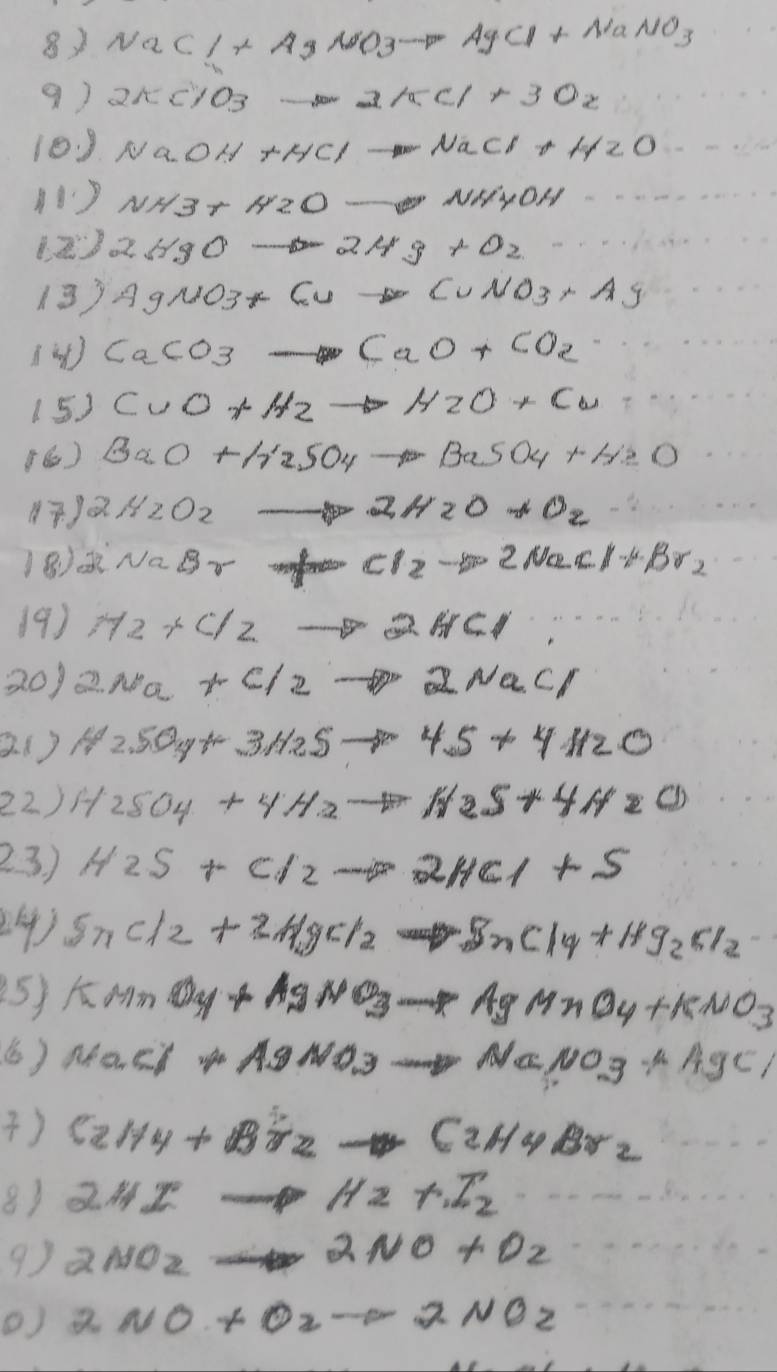 8) NaCl + AgNO3 → AgCl + NaNO3
9) 2KClO3 → 2KCl + 3O2
10) NaOH + HCl → NaCl + H2O
11) NH3 + H2O → NH4OH
12) 2HgO → 2Hg + O2
13) AgNO3 + Cu → CuNO3 + Ag
14) CaCO3 → CaO + CO2
15) CuO + H2 → H2O + Cu
16) BaO + H2SO4 → BaSO4 + H2O
17) 2H2O2 → 2H2O + O2
18) 2NaBr + Cl2 → 2NaCl + Br2
19) H2 + Cl2 → 2HCl
20) 2Na + Cl2 → 2NaCl
21) H2SO4 + 3H2S → 4S + 4H2O
22) H2SO4 + 4H2 → H2S + 4H2O
23) H2S + Cl2 → 2HCl + S
24) SnCl2 + 2HgCl2 → SnCl4 + Hg2Cl2
5) KMnO4 + AgNO3 → AgMnO4 + KNO3
6) NaCl + AgNO3 → NaNO3 + AgCl
7) C2H4 + Br2 → C2H4Br2
8) 2HI → H2 + I2
9) 2NO2 → 2NO + O2
0) 2NO + O2 → 2NO2